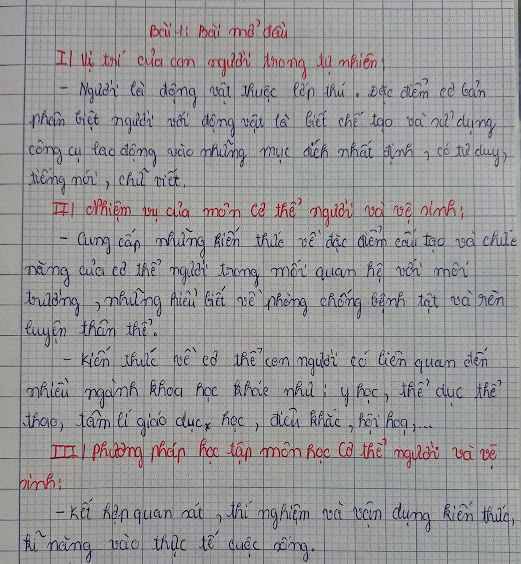 Bài 1: Bài mở đầu
I/ Vị trí của con người trong tự nhiên:
- Người là động vật thuộc lớp thú. Đặc điểm cơ bản
phân biệt người với động vật là biết chế tạo và sử dụng
công cụ lao động vào những mục đích nhất định, có tư duy,
tiếng nói, chữ viết.
II/ Nhiệm vụ của môn cơ thể người và vệ sinh:
- Cung cấp những kiến thức về đặc điểm cấu tạo và chức
năng của cơ thể người trong mối quan hệ với môi
trường, những hiểu biết về phòng chống bệnh tật và rèn
luyện thân thể.
- Kiến thức về cơ thể con người có liên quan đến
nhiều ngành khoa học khác như: y học, thể dục thể
thao, tâm lí giáo dục, học, điêu khắc, hội họa,...
III/ Phương pháp học tập môn học Cơ thể người và vệ
sinh:
- Kết hợp quan sát, thí nghiệm và vận dụng kiến thức,
kĩ năng vào thực tế cuộc sống.